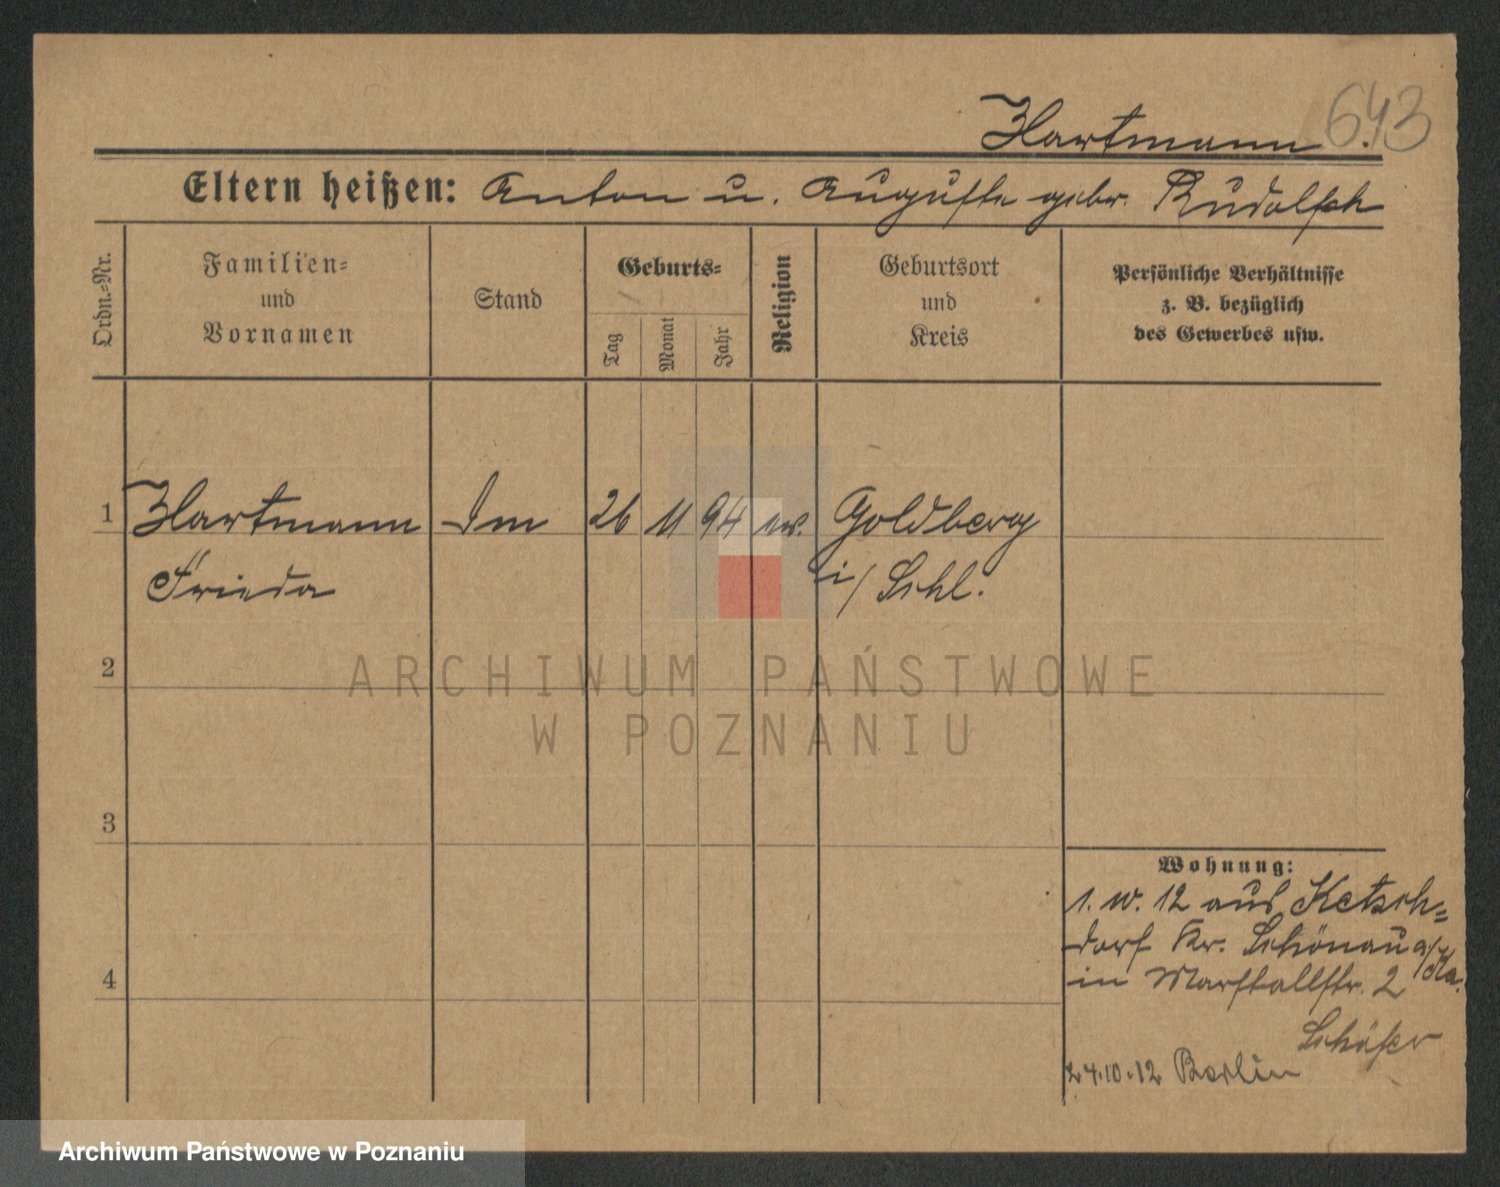 Hartmann 643
Eltern heißen: Anton u. Auguste gebr. Rudolph
Ordn.-Nr.
Familien-
und
Vornamen
Stand
Geburts-
Tag
Monat
Jahr
Religion
Geburtsort
und
Kreis
Persönliche Verhältnisse
z. B. bezüglich
des Gewerbes usw.
1 Hartmann 26 11 94 ev. Goldberg
Frieda i/ Schl.
2
3
4
Wohnung:
1. 10. 12 aus Ketsch=
dorf Kr. Schönau a/Ka.
in Marstallstr. 2
Schäfer
24.10.12 Berlin
ARCHIWUM PAŃSTWOWE
W POZNANIU
Archiwum Państwowe w Poznaniu